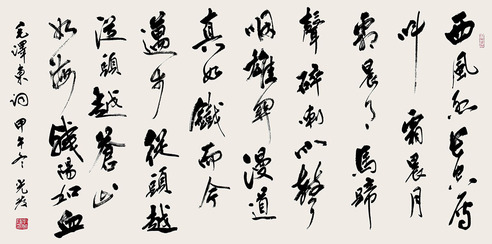 西風烈長空雁
叫霜晨月
霜晨月馬蹄
聲碎喇叭聲
咽雄關漫道
真如鐵而今
邁步從頭越
從頭越蒼山
如海殘陽如血
毛澤東詞 甲午冬